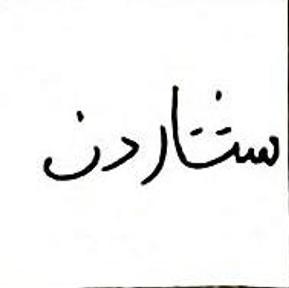 سثتاردن